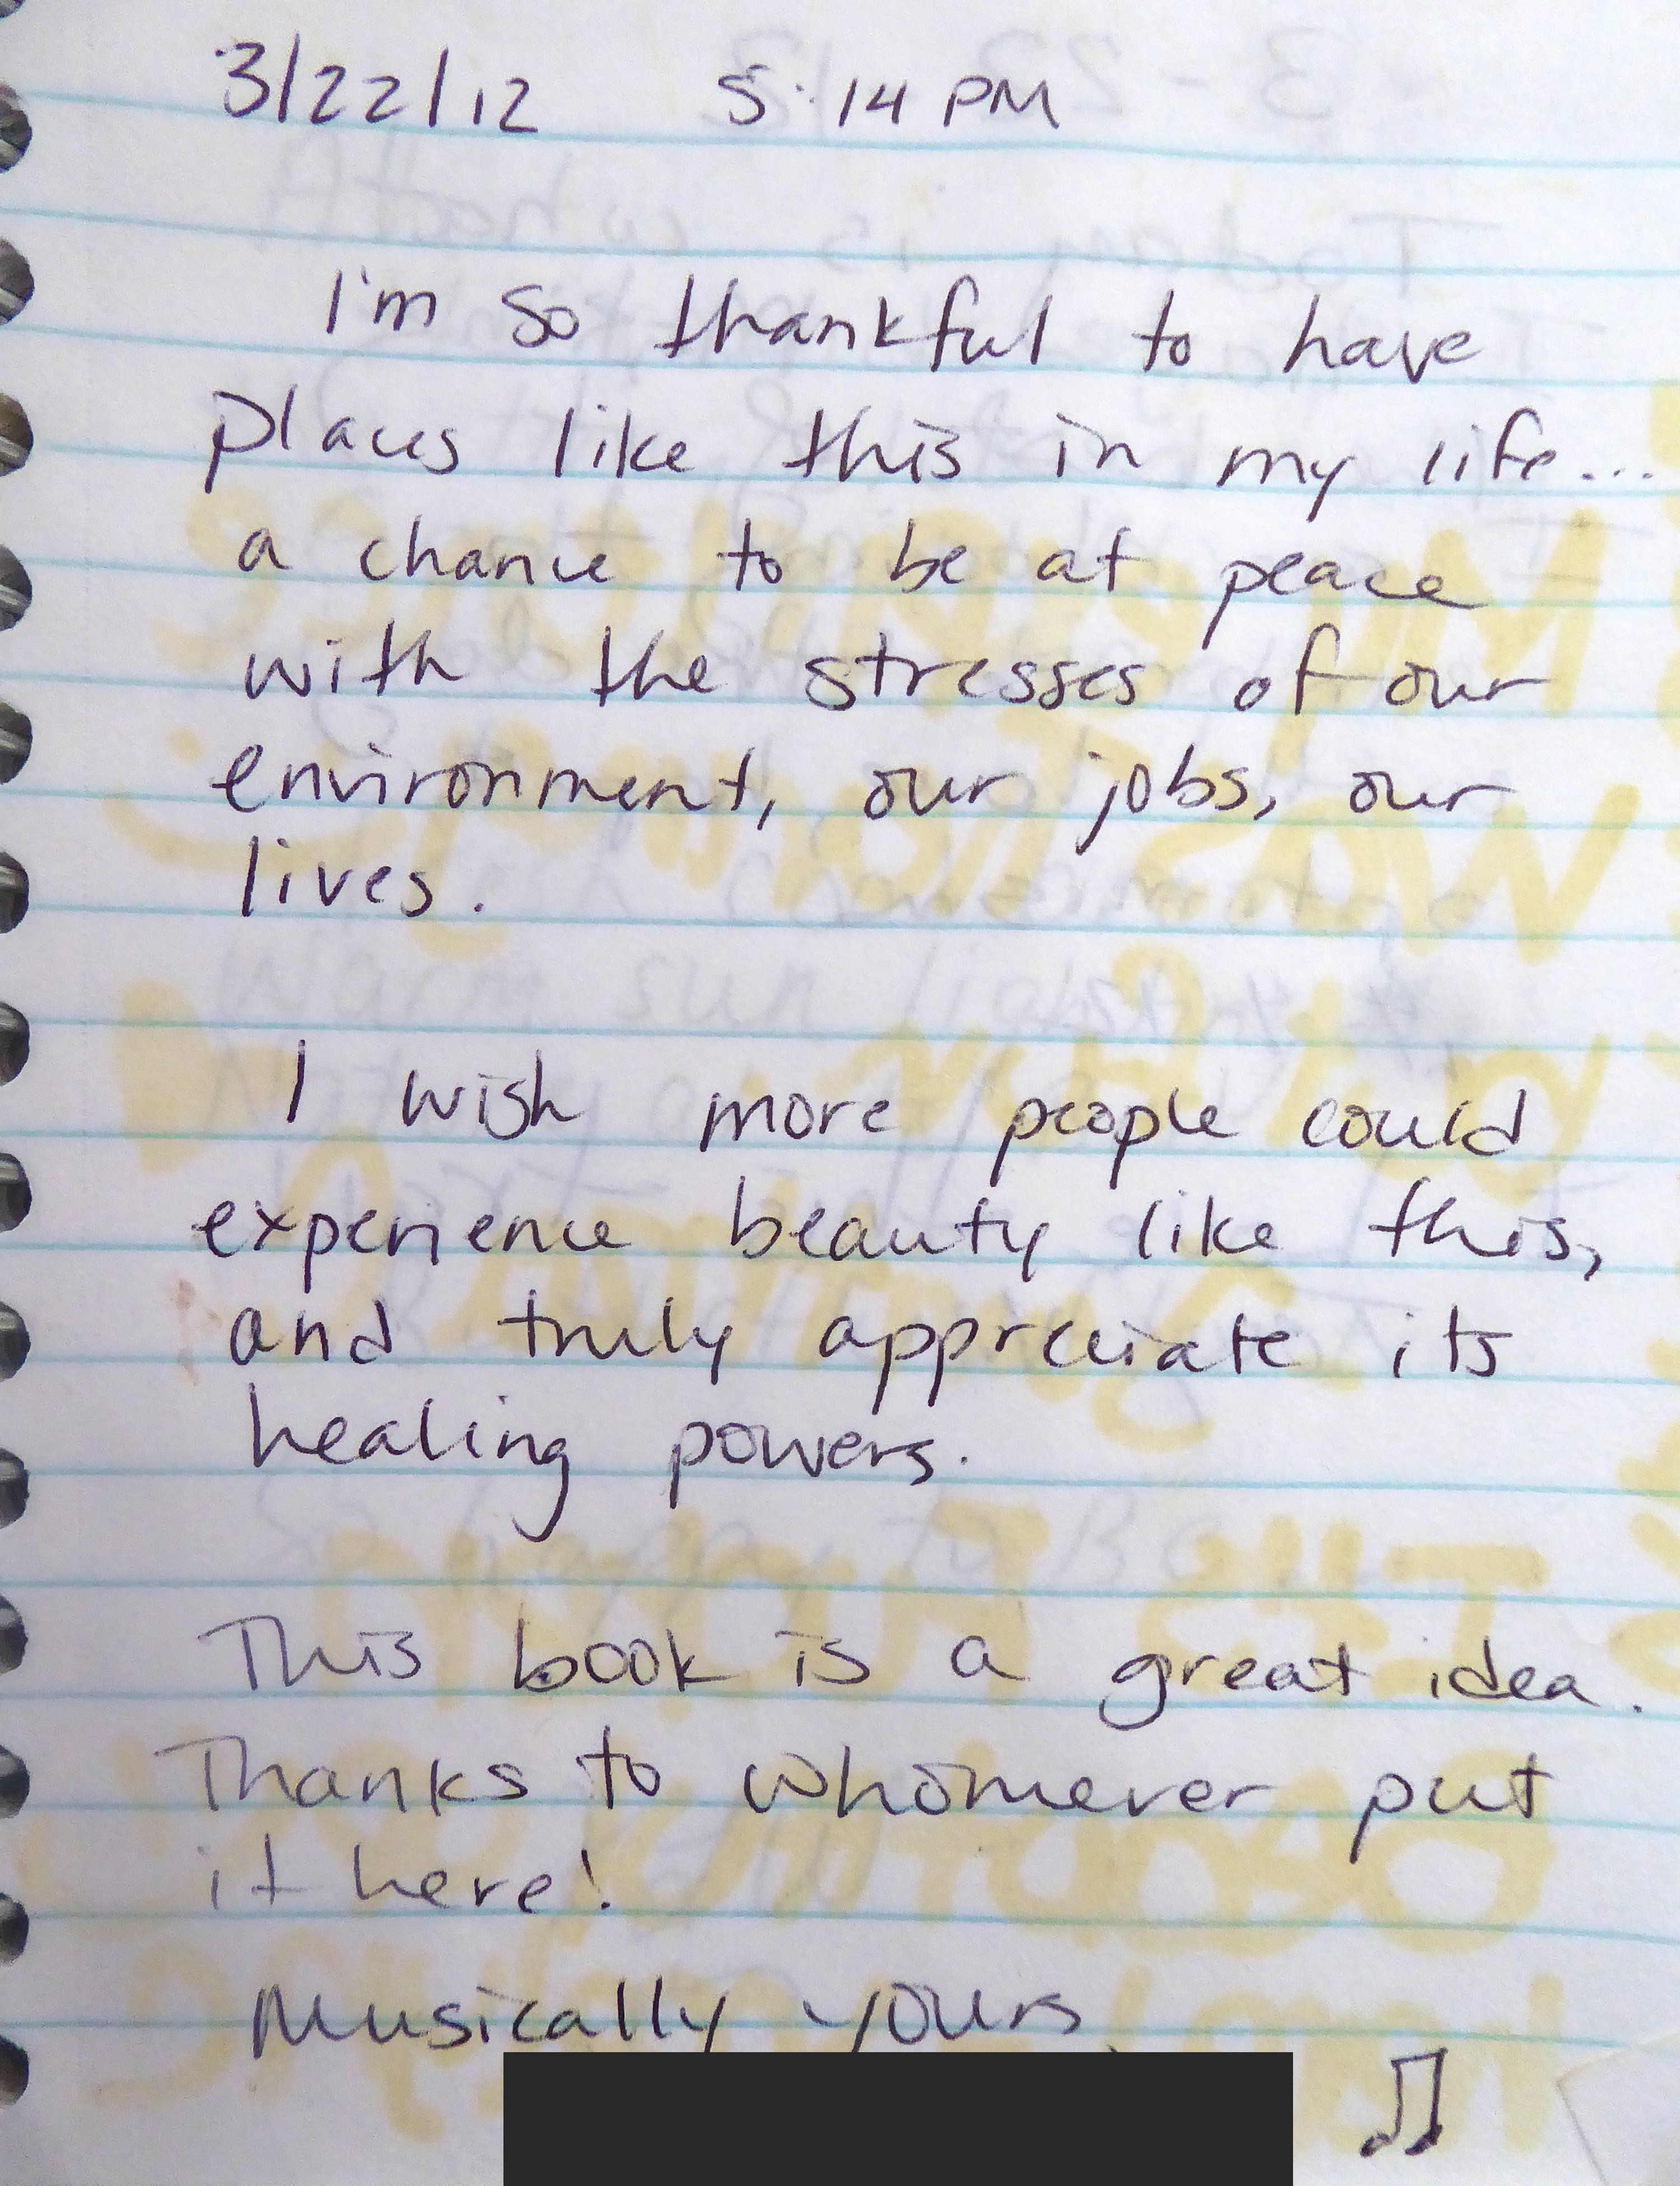 3/22/12 5:14 PM
I'm so thankful to have
places like this in my life...
a chance to be at peace
with the stresses of our
environment, our jobs, our
lives.
I wish more people could
experience beauty like this,
and truly appreciate its
healing powers.
This book is a great idea.
Thanks to whomever put
it here!
Musically yours,